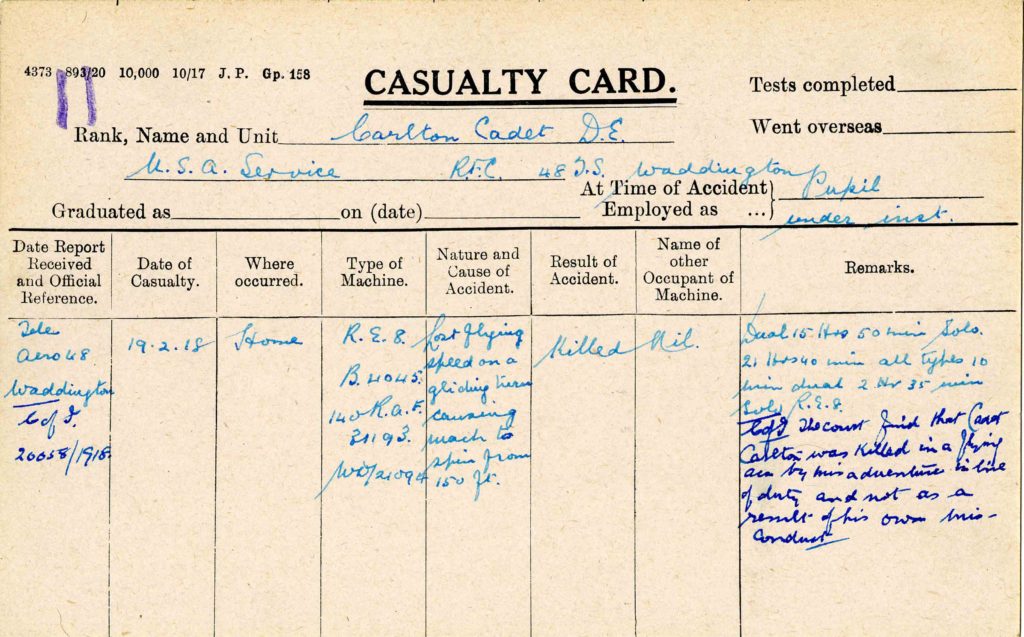 4373 893/20 10,000 10/17 J. P. Gp. 158
11
CASUALTY CARD.
Tests completed
Went overseas
Rank, Name and Unit Carlton Cadet D.E.
U.S.A. Service R.F.C. 48 T.S. Waddington
At Time of Accident Employed as ... Pupil
under inst.
Graduated as on (date)
Date Report Received and Official Reference.
Date of Casualty.
Where occurred.
Type of Machine.
Nature and Cause of Accident.
Result of Accident.
Name of other Occupant of Machine.
Remarks.
Tele
Aero 48
Waddington
C of I.
20058/1918
19.2.18
Home
R.E.8.
B.4045.
140 R.a.F.
31193.
Lost flying
speed on a
gliding turn
causing
mach to
spin from
150 ft.
Killed
Nil.
Dual 15 Hrs 50 min Solo.
21 Hrs 40 min all types 10
min dual 2 Hr 35 min
Solo R.E.8.
C of I The court find that Cadet
Carlton was killed in a flying
acc by misadventure in line
of duty and not as a
result of his own mis-
conduct